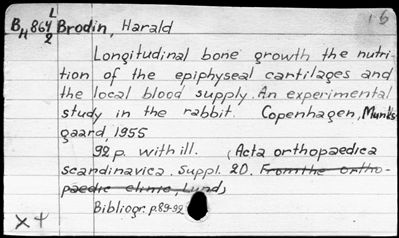 16
L
BH 864 Brodin, Harald
2
Longitudinal bone growth the nutri-
tion of the epiphyseal cartilages and
the local blood supply. An experimental
study in the rabbit. Copenhagen, Munks
gaard, 1955
92 p. with ill. (Acta orthopaedica
scandinavica. Suppl. 20. From the ortho-
paedic clinic, Lund)
Bibliogr. p. 89-92
X4